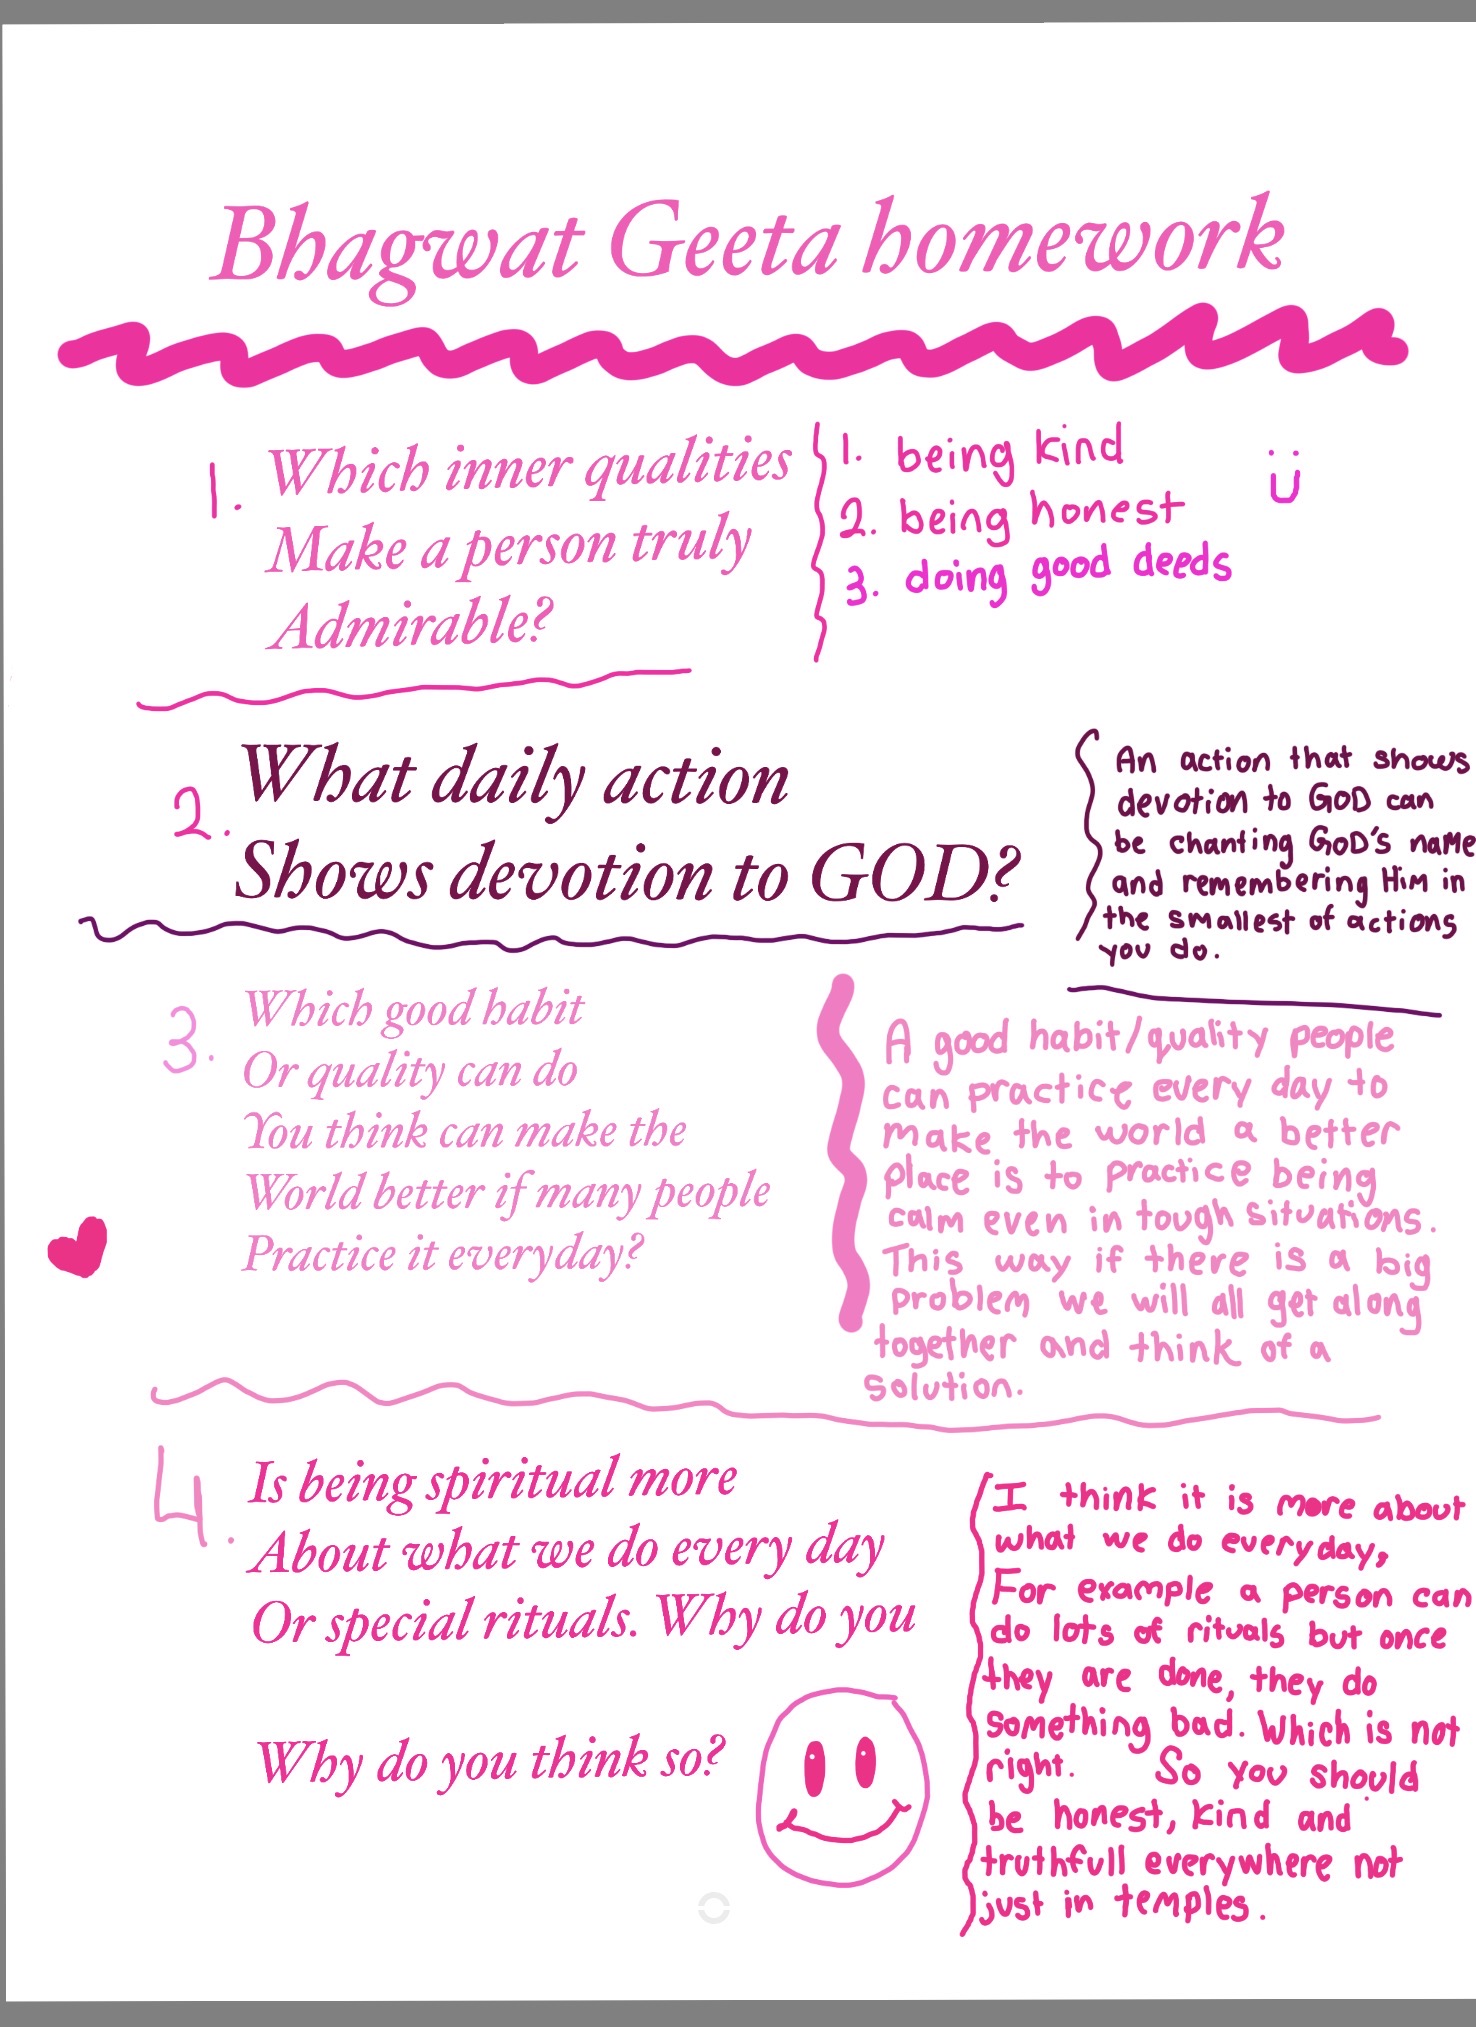 Bhagwat Geeta homework
1. Which inner qualities
Make a person truly
Admirable?
1. being kind
2. being honest
3. doing good deeds
2. What daily action
Shows devotion to GOD?
An action that shows
devotion to GOD can
be chanting GOD's name
and remembering Him in
the smallest of actions
you do.
3. Which good habit
Or quality can do
You think can make the
World better if many people
Practice it everyday?
A good habit/quality people
can practice every day to
make the world a better
place is to practice being
calm even in tough situations.
This way if there is a big
problem we will all get along
together and think of a
solution.
4. Is being spiritual more
About what we do every day
Or special rituals. Why do you
Why do you think so?
I think it is more about
what we do everyday,
For example a person can
do lots of rituals but once
they are done, they do
something bad. Which is not
right. So you should
be honest, kind and
truthfull everywhere not
just in temples.